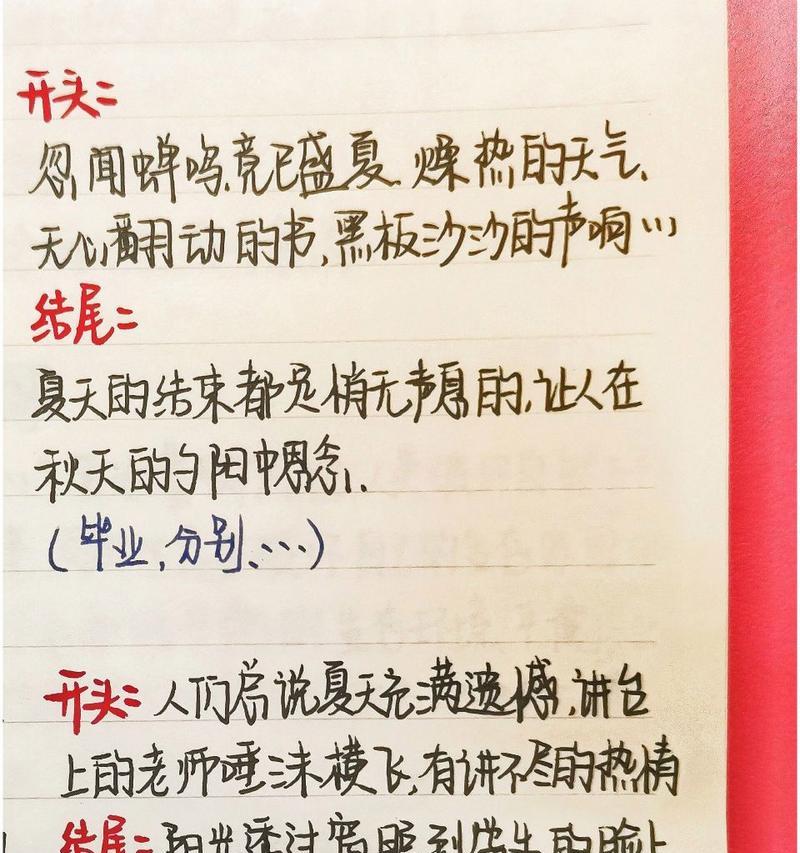 开头:
忽闻蝉鸣,竟已盛夏.燥热的天气、
无心翻动的书,黑板沙沙的声响…
结尾:
夏天的结束都是悄无声息的,让人在
秋天的夕阳中思念.
(毕业,分别、…)
开头:人们总说夏天充满遗憾,讲台
上的老师唾沫横飞,有讲不尽的热情
结尾:阳光透过窗照到学生的脸上